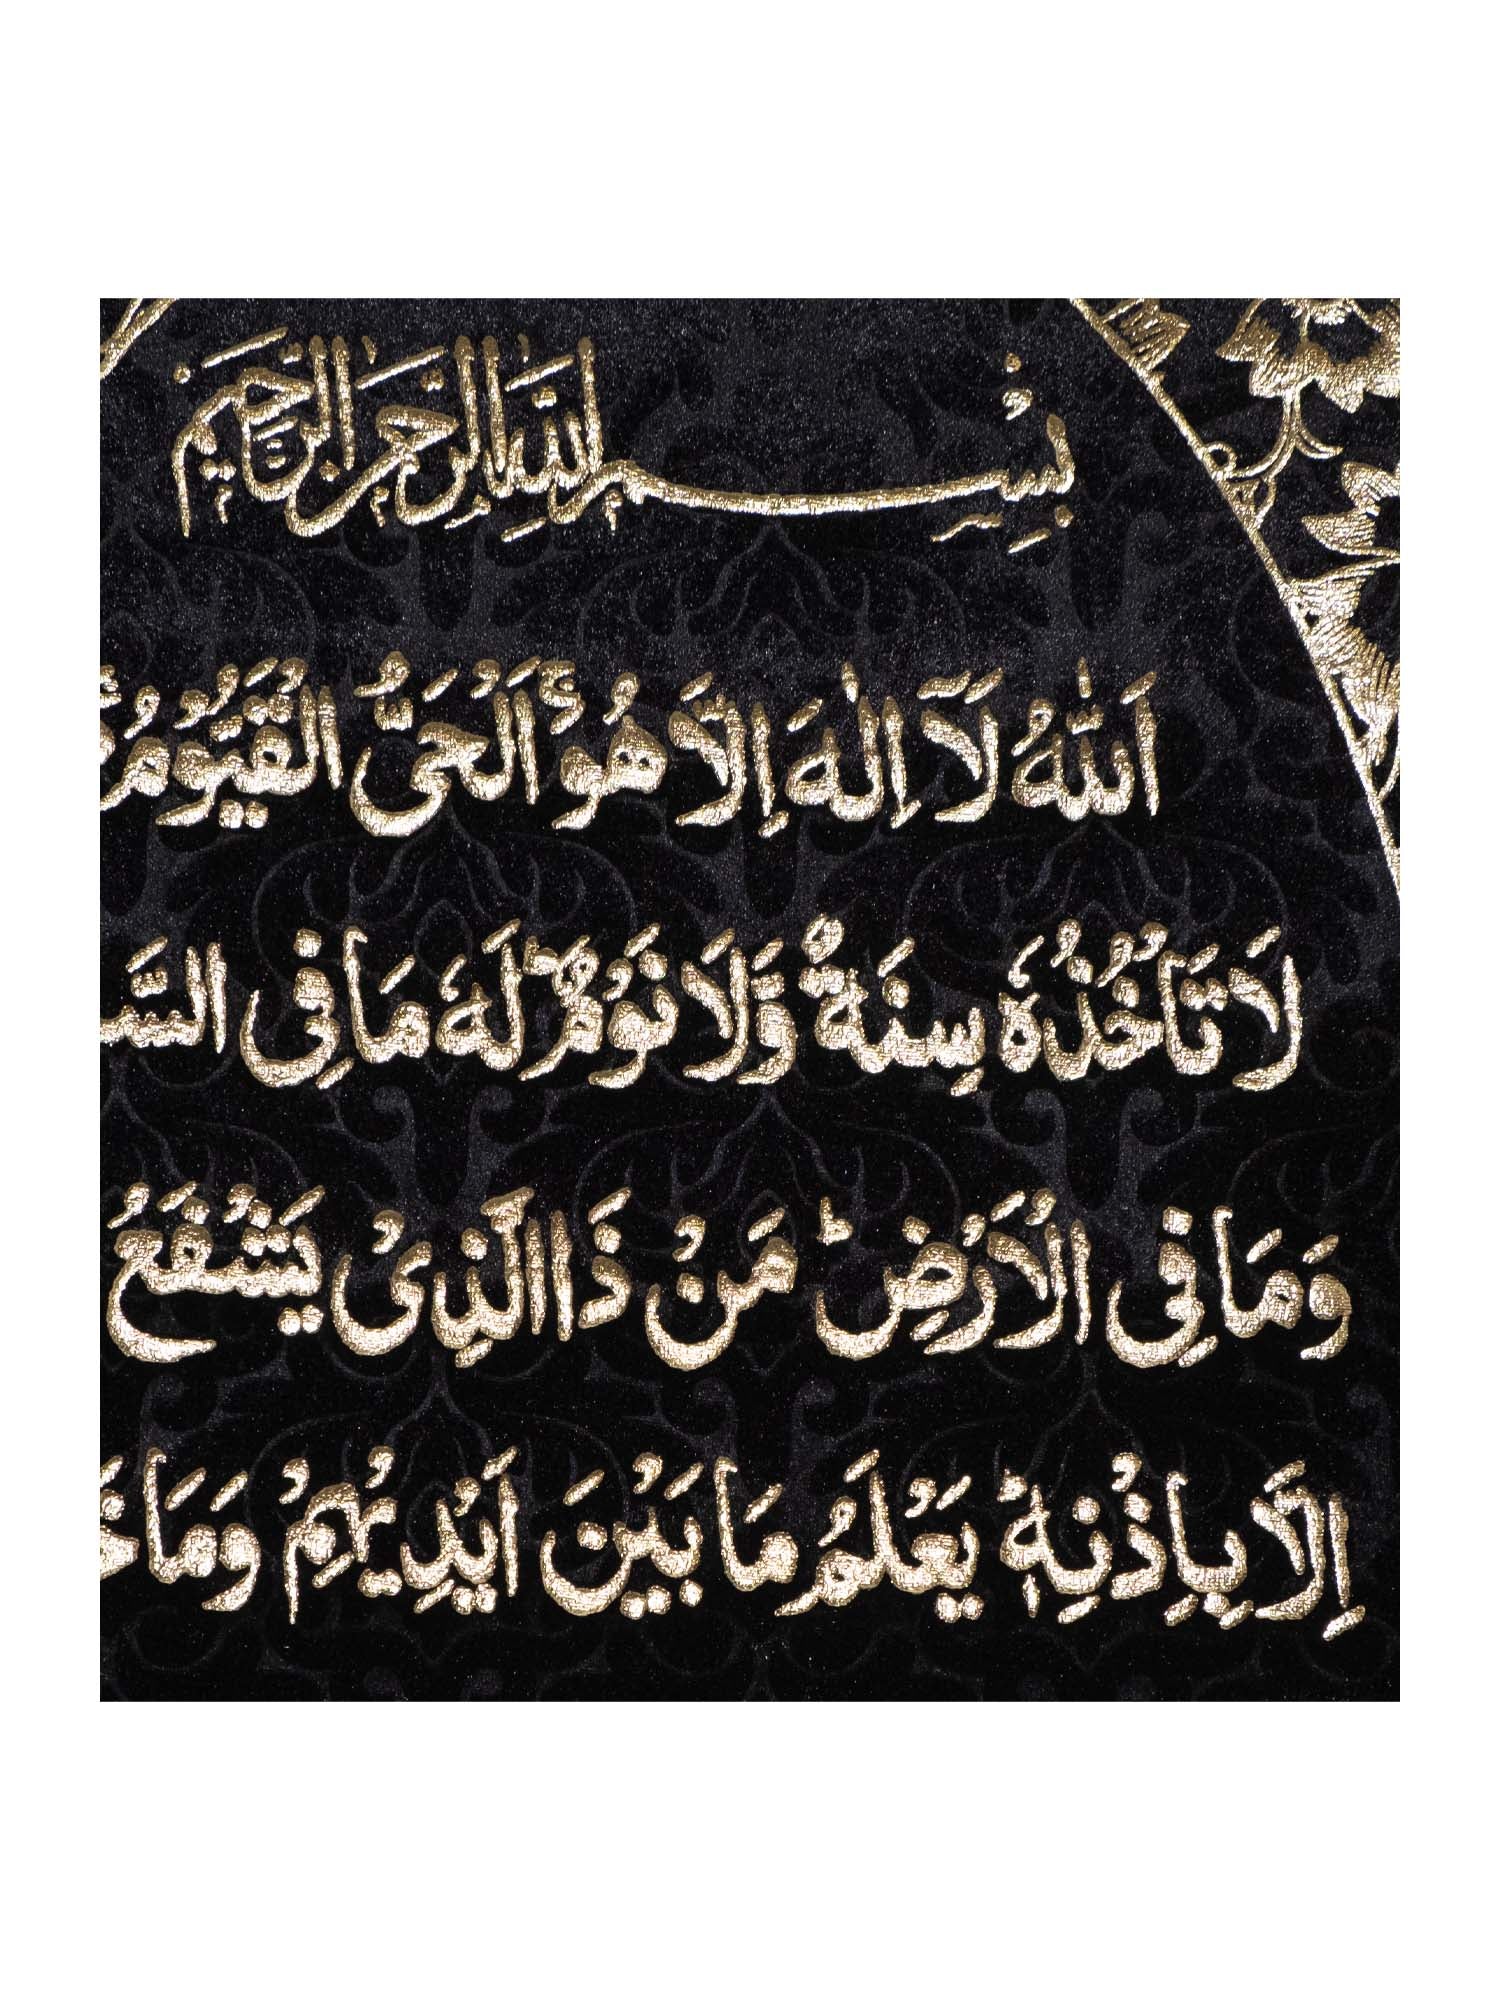 بِسْمِ اللهِ الرَّحْمٰنِ الرَّحِيْمِ
اَللّٰهُ لَآ اِلٰهَ اِلَّا هُوَ ۚ اَلْحَيُّ الْقَيُّوْمُ
لَا تَاْخُذُهٗ سِنَةٌ وَّلَا نَوْمٌ ؕ لَهٗ مَا فِى
وَمَا فِى الْاَرْضِ ؕ مَنْ ذَا الَّذِىْ يَشْفَعُ
اِلَّا بِاِذْنِهٖ ؕ يَعْلَمُ مَا بَيْنَ اَيْدِيْهِمْ وَمَا